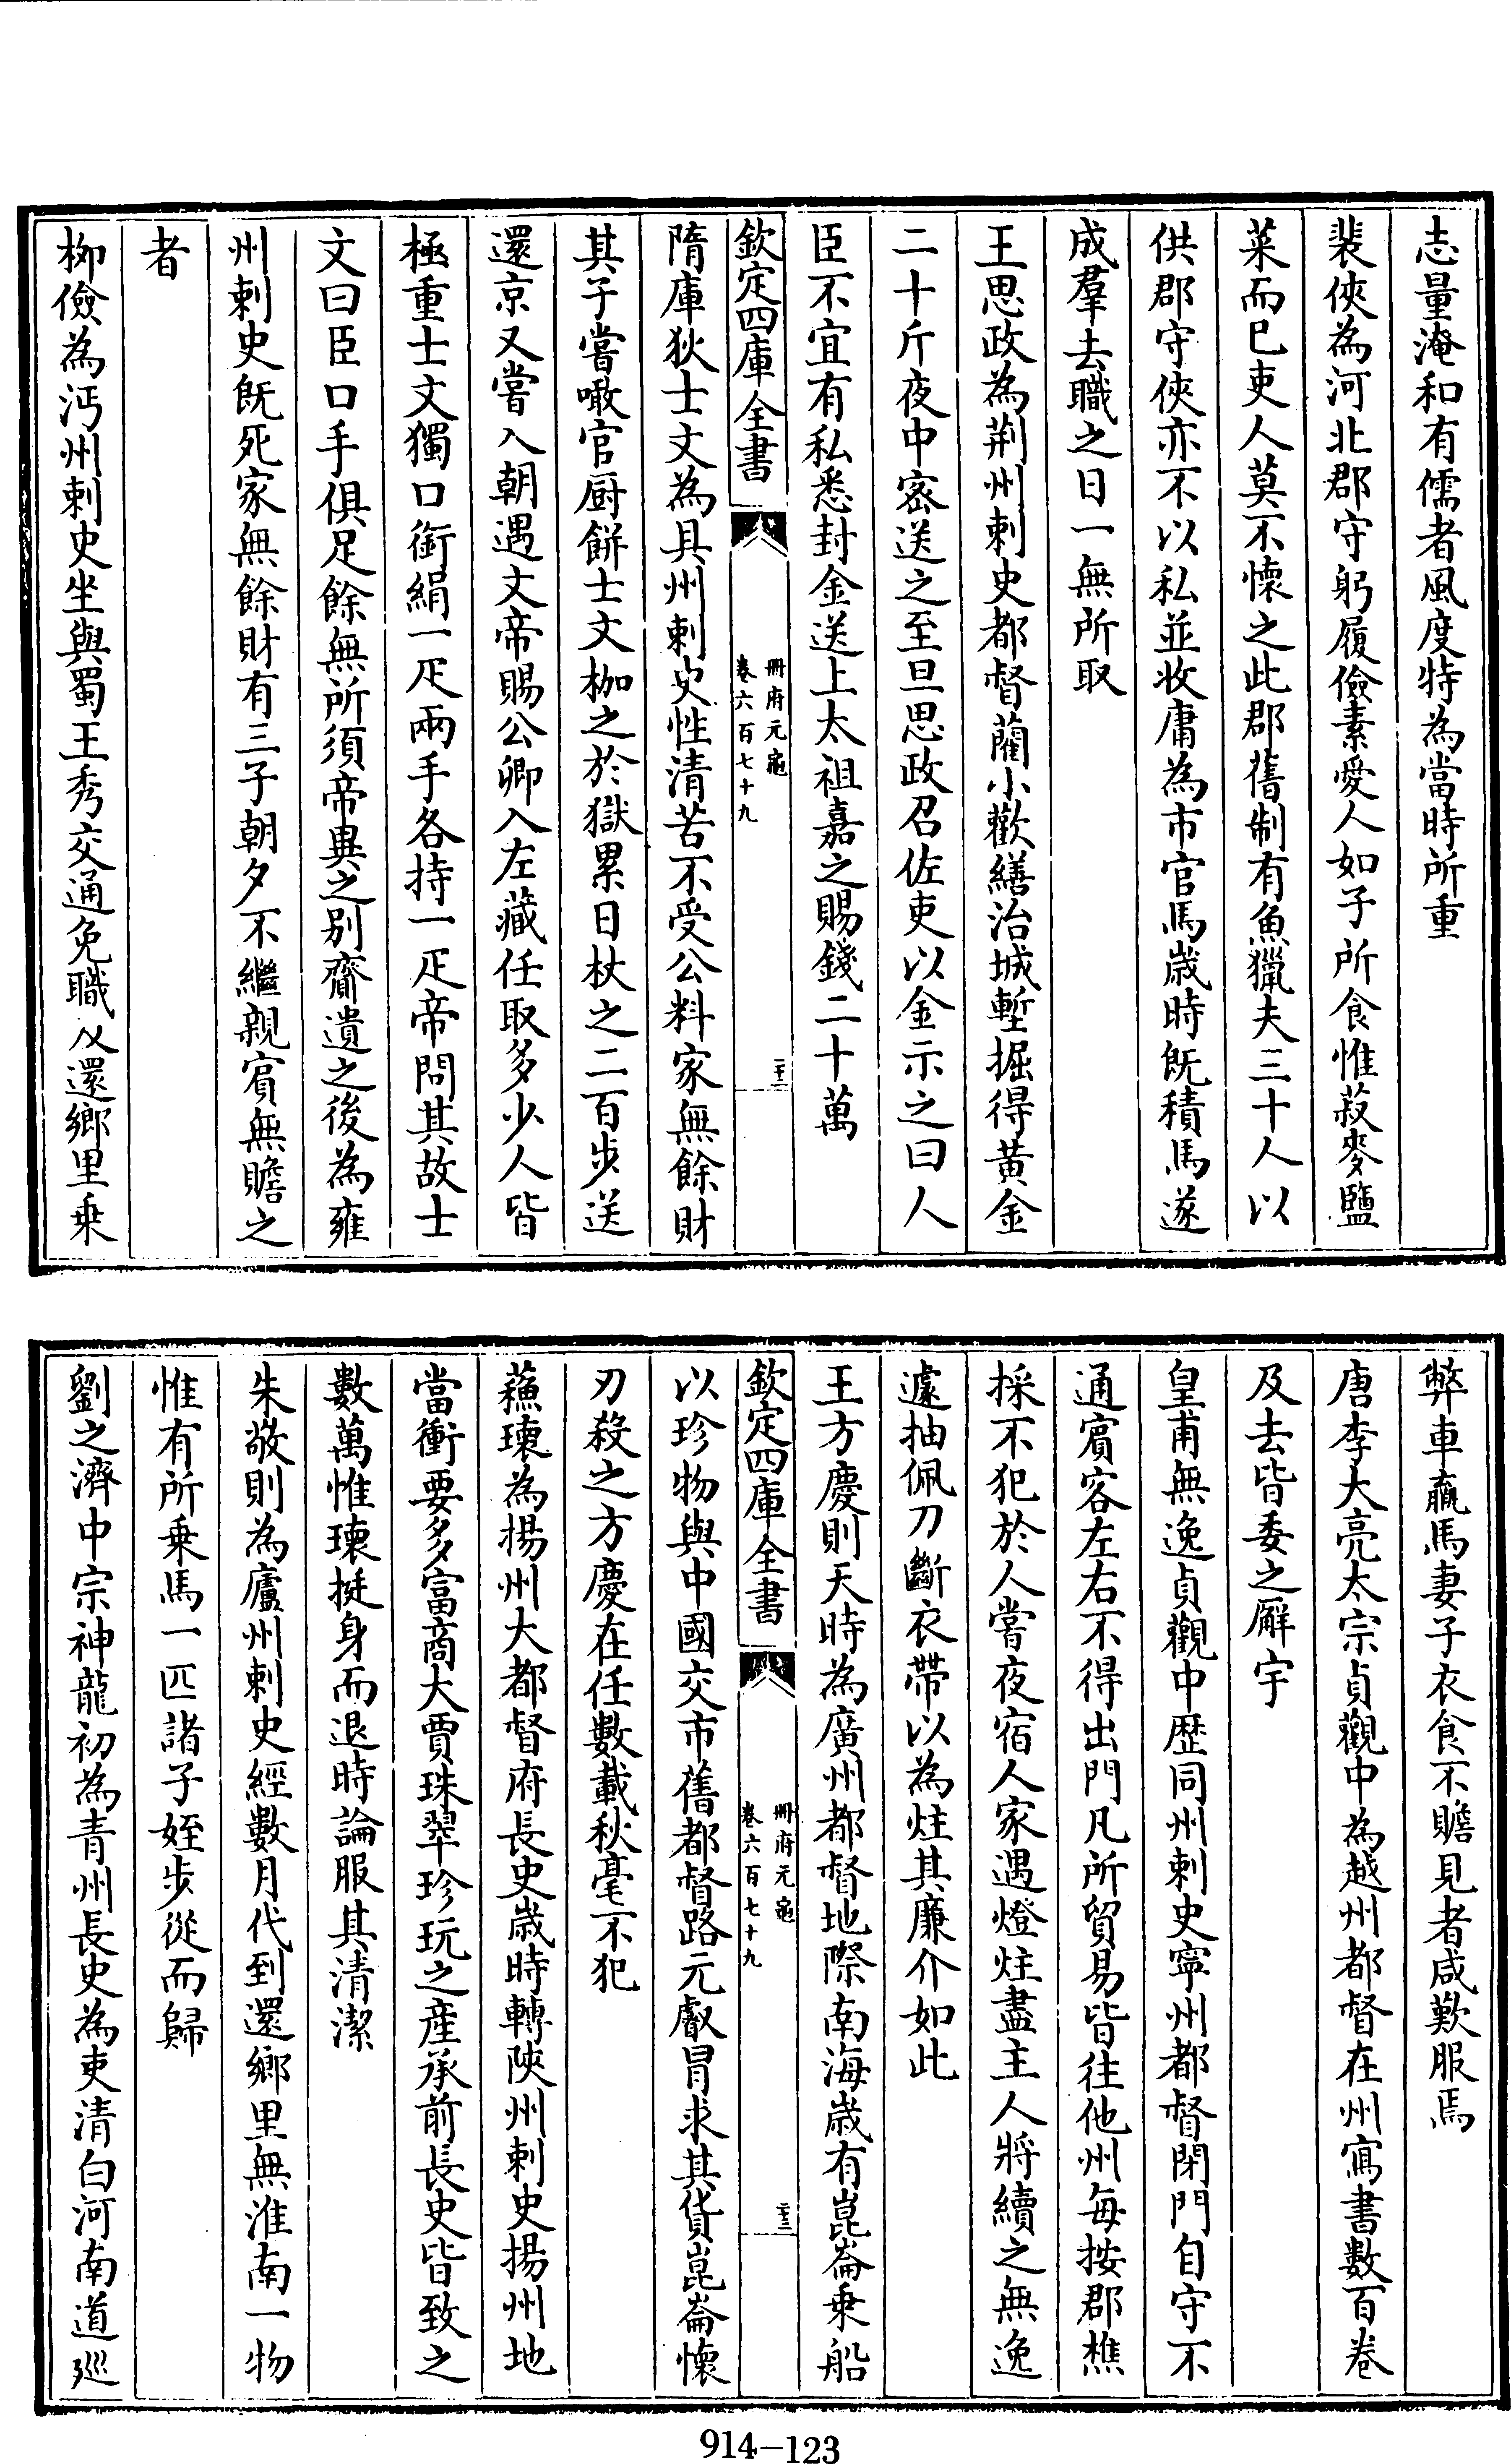 志量淹和有儒者風度特為當時所重
裴俠為河北郡守躬履儉素愛人如子所食惟菽麥鹽
菜而已吏人莫不懷之此郡舊制有魚獵夫三十人以
供郡守俠亦不以私並收庸為市官馬歲時既積馬遂
成羣去職之日一無所取
王思政為荆州刺史都督藺小歡繕治城塹掘得黄金
二十斤夜中密送之至旦思政召佐吏以金示之曰人
臣不宜有私悉封金送上太祖嘉之賜錢二十萬
欽定四庫全書
冊府元龜
卷六百七十九
二十二
隋庫狄士文為具州刺史性清苦不受公料家無餘財
其子嘗噉官厨餅士文枷之於獄累日杖之二百步送
還京又嘗入朝遇文帝賜公卿入左藏任取多少人皆
極重士文獨口銜絹一疋兩手各持一疋帝問其故士
文曰臣口手俱足餘無所須帝異之别齎遺之後為雍
州刺史既死家無餘財有三子朝夕不繼親賓無贍之
者
栁儉為沔州刺史坐與蜀王秀交通免職及還鄉里乗
弊車羸馬妻子衣食不贍見者咸歎服焉
唐李大亮太宗貞觀中為越州都督在州寫書數百巻
及去皆委之廨宇
皇甫無逸貞觀中歴同州刺史寜州都督閉門自守不
通賓客左右不得出門凡所貿易皆往他州每按郡樵
採不犯於人嘗夜宿人家遇燈炷盡主人將續之無逸
遽抽佩刀斷衣帶以為炷其廉介如此
王方慶則天時為廣州都督地際南海歲有崑崙乗船
欽定四庫全書
冊府元龜
卷六百七十九
二十三
以珍物與中國交市舊都督路元叡冒求其貨崑崙懷
刃殺之方慶在任數載秋毫不犯
蘓瓌為揚州大都督府長史歲時轉陜州刺史揚州地
當衝要多富商大賈珠翠珍玩之産承前長史皆致之
數萬惟瓌挺身而退時論服其清潔
朱敬則為廬州刺史經數月代到還鄉里無淮南一物
惟有所乗馬一匹諸子姪步從而歸
劉之濟中宗神龍初為青州長史為吏清白河南道廵
914-123